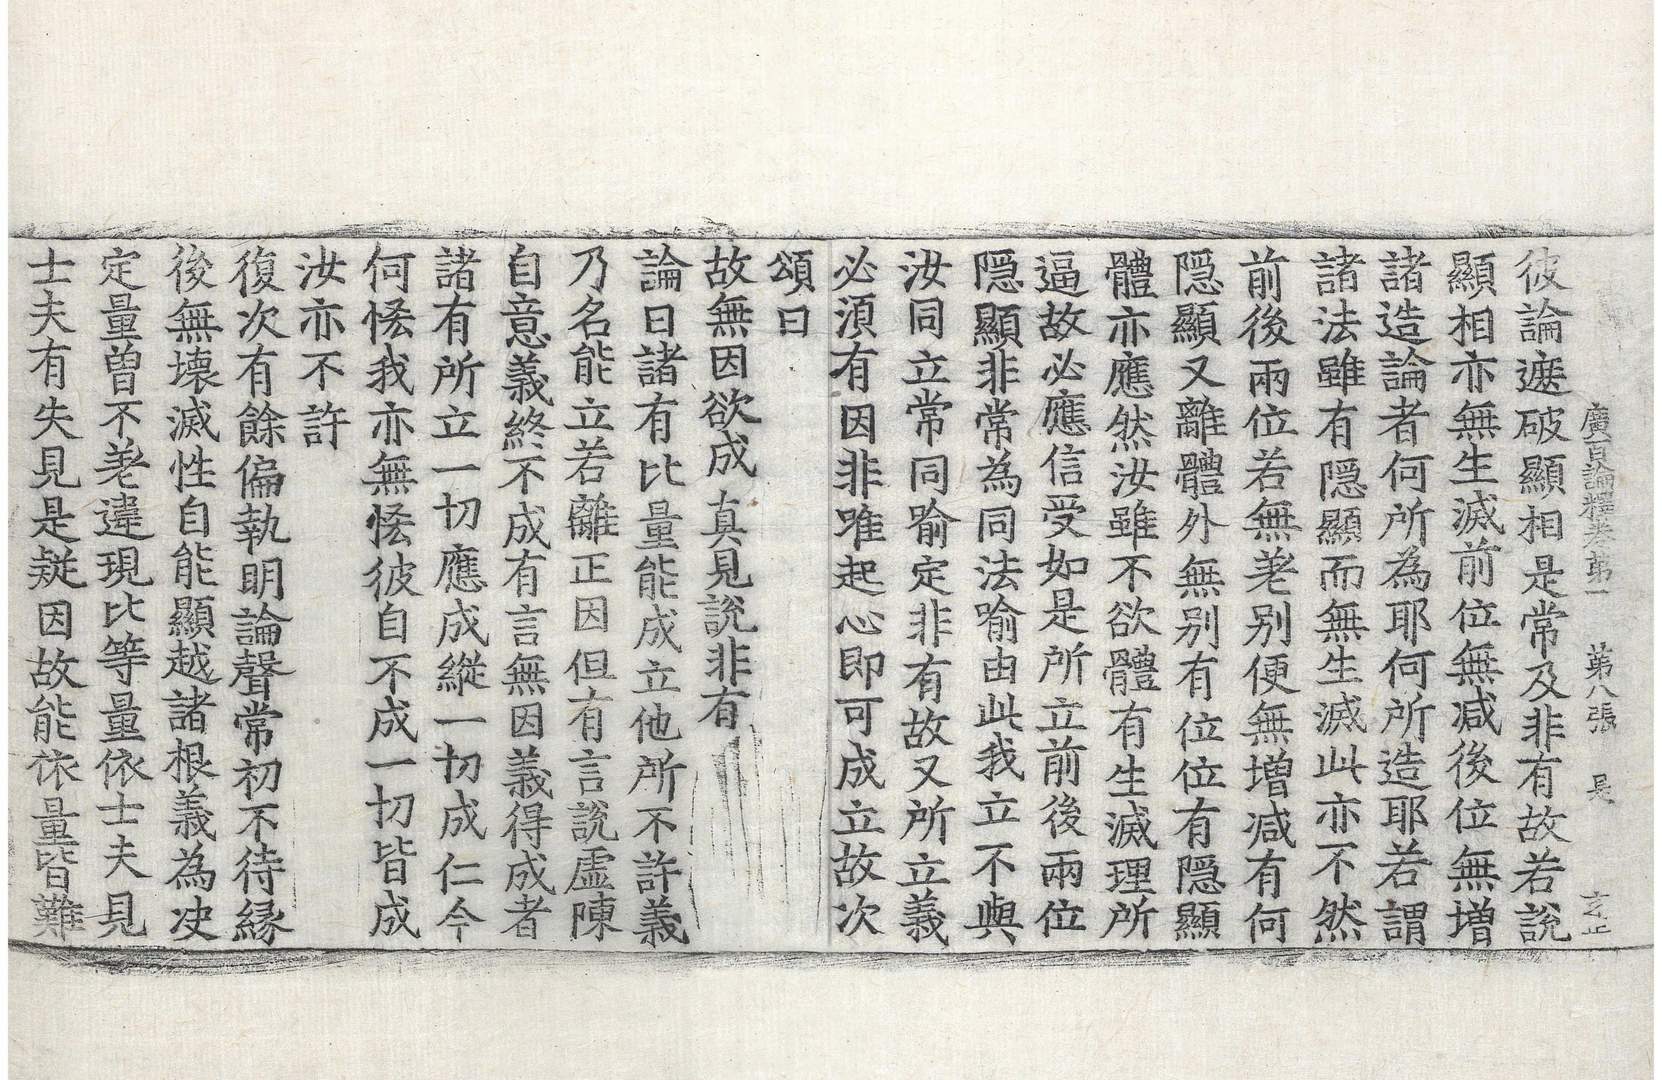 廣百論釋卷第一 第八張 長 玄正
彼論遮破顯相是常及非有故若說
顯相亦無生滅前位無減後位無增
諸造論者何所為耶何所造耶若謂
諸法雖有隱顯而無生滅此亦不然
前後兩位若無差別便無增減有何
隱顯又離體外無別有位位有隱顯
體亦應然汝雖不欲體有生滅理所
逼故必應信受如是所立前後兩位
隱顯非常為同法喻由此我立不與
汝同立常同喻定非有故又所立義
必須有因非唯起心即可成立故次
頌曰
故無因欲成 真見說非有
論曰諸有比量能成立他所不許義
乃名能立若離正因但有言說虛陳
自意義終不成有言無因義得成者
諸有所立一切應成縱一切成仁今
何恠我亦無恠彼自不成一切皆成
汝亦不許
復次有餘偏執明論聲常初不待緣
後無壞滅性自能顯越諸根義為決
定量曾不差違現比等量依士夫見
士夫有失見是疑因故能依量皆難